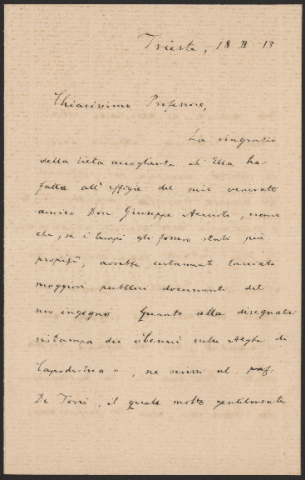 Trieste, 18 II 13
Chiarissimo Professore,
La ringrazio
della lieta accoglienza ch'Ella ha
fatta all'effigie del mio venerato
amico Don Giuseppe uomo
che, se i tempi gli fossero stati più
propizi, avrebbe certamente lasciato
maggiori pubblici documenti del
suo ingegno. Quanto alla disegnata
ristampa dei «Cenni sulle Alghe di
Capodistria», ne scrissi al prof.
De Toni, il quale molto gentilmente